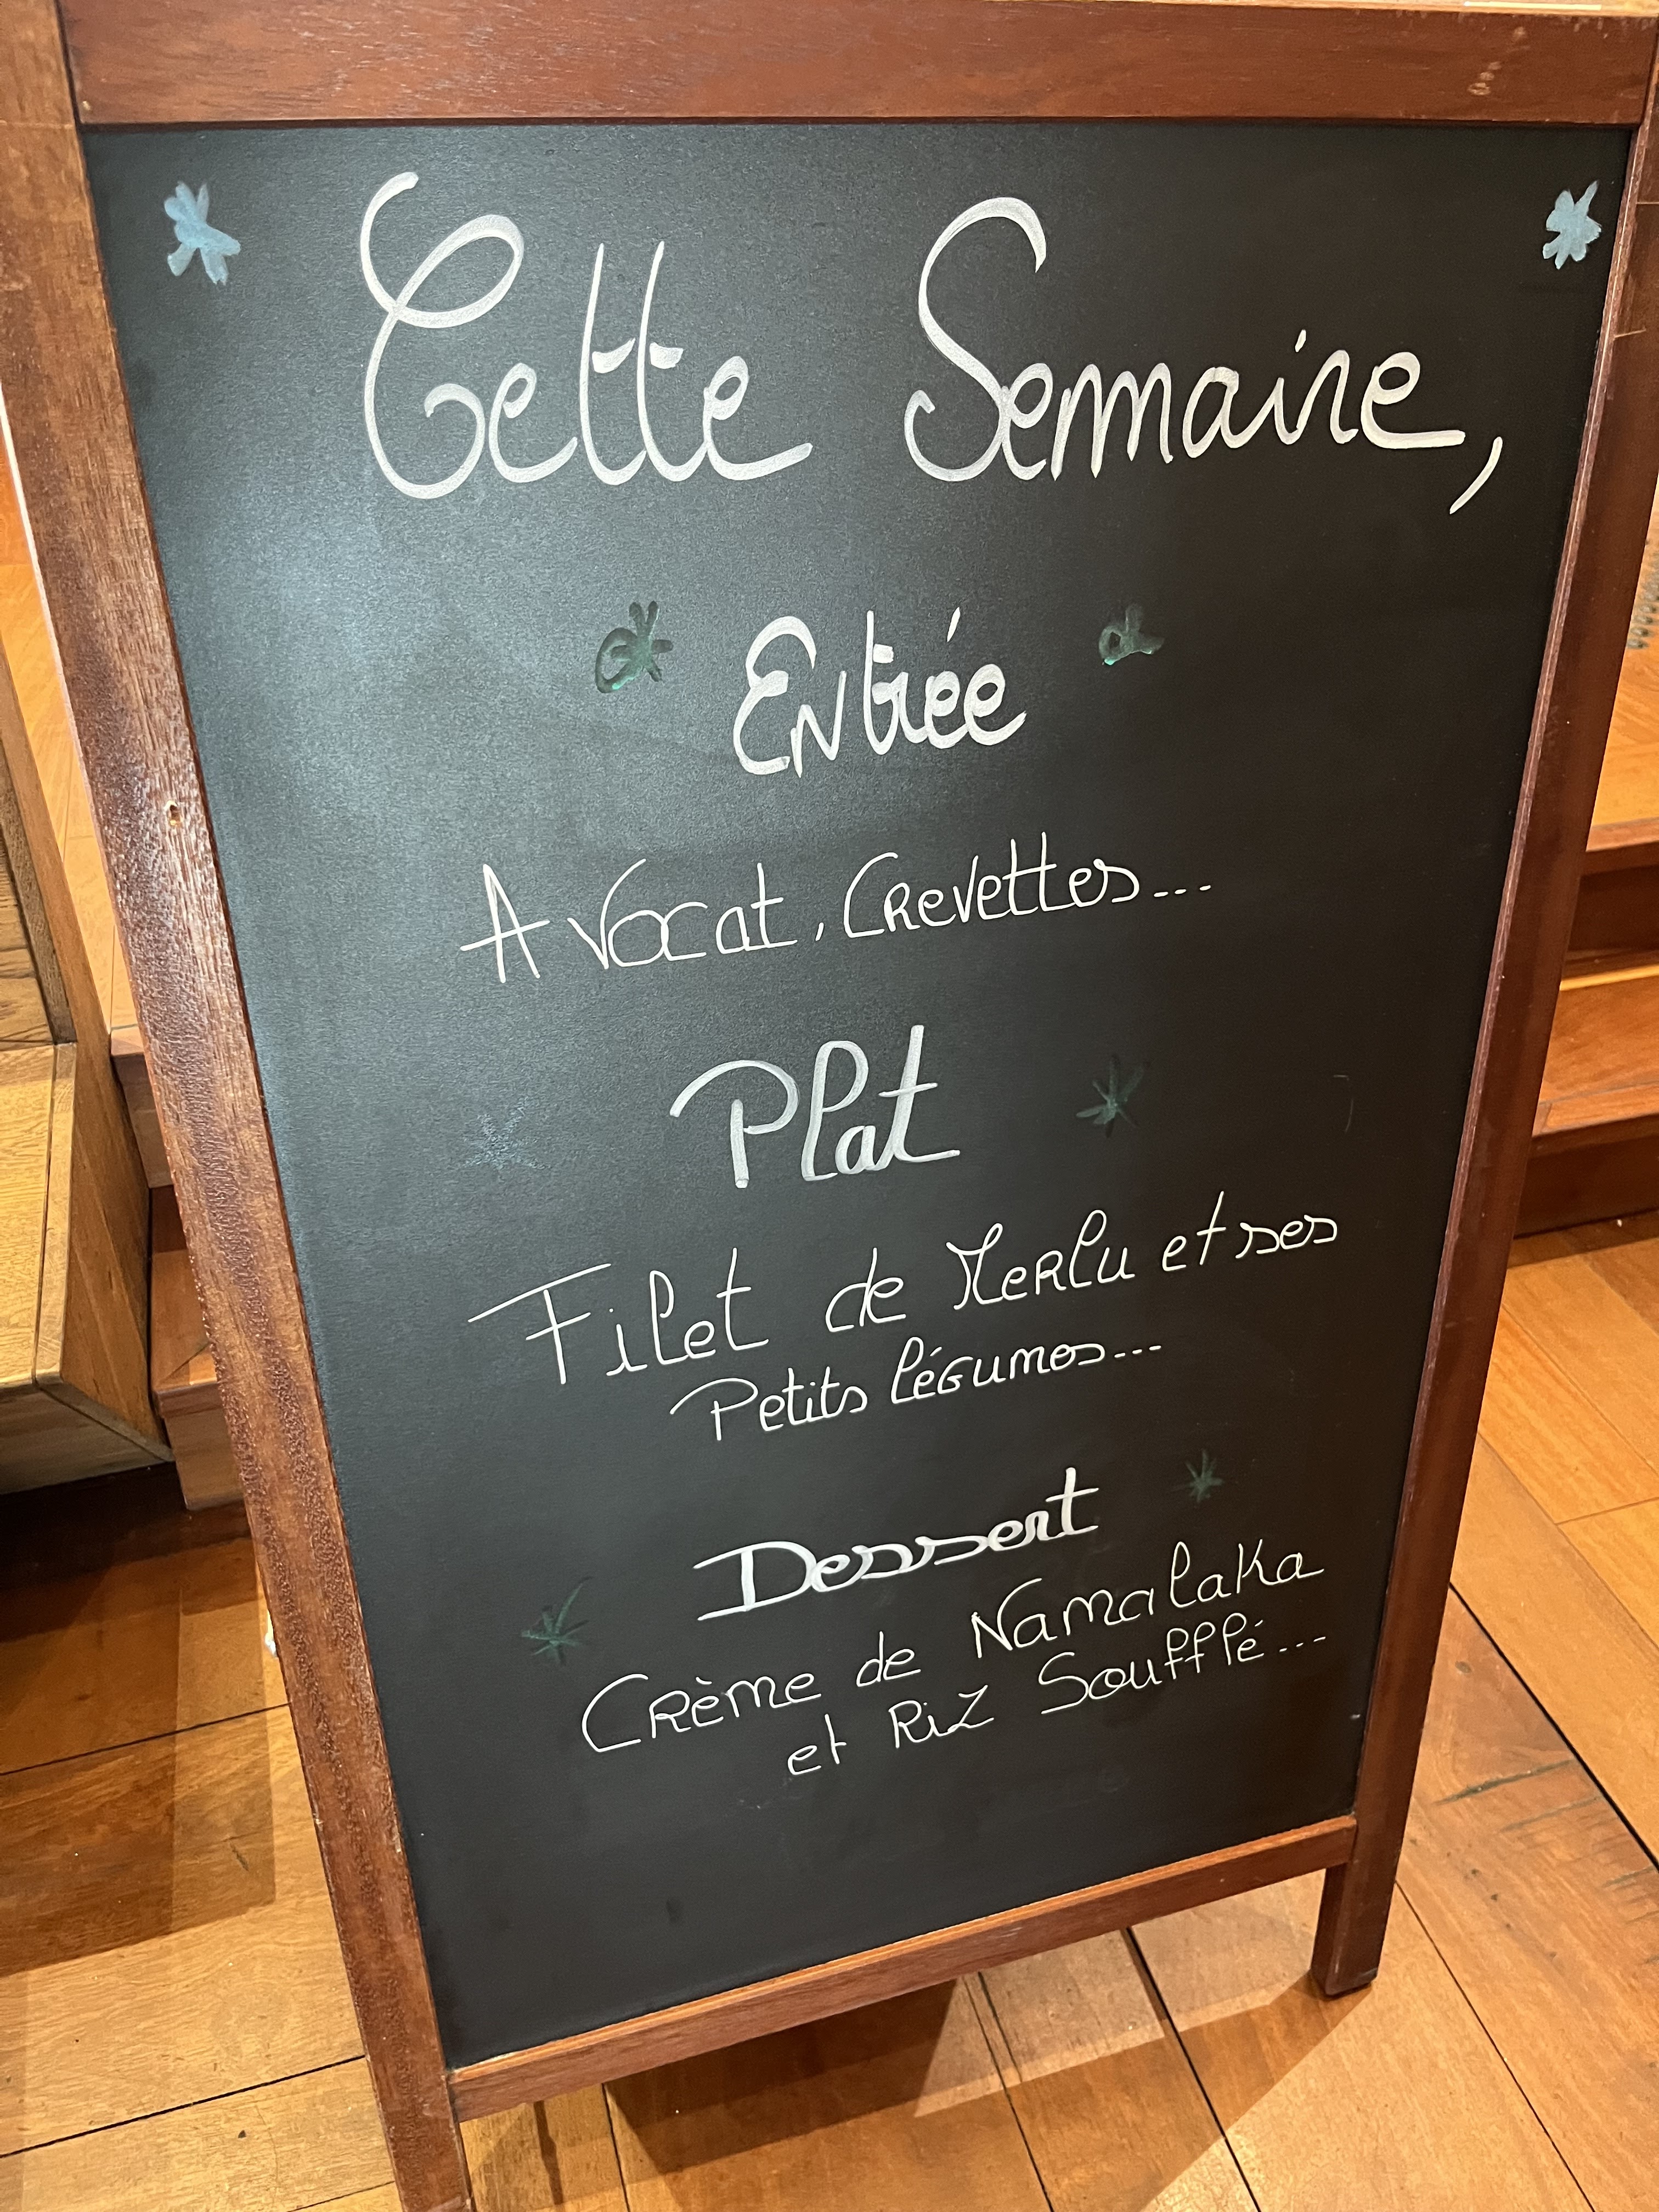 Cette Semaine,
Entrée
Avocat, Crevettes...
Plat
Filet de Merlu et ses
Petits légumes...
Dessert
Crème de Namalaka
et Riz Soufflé...